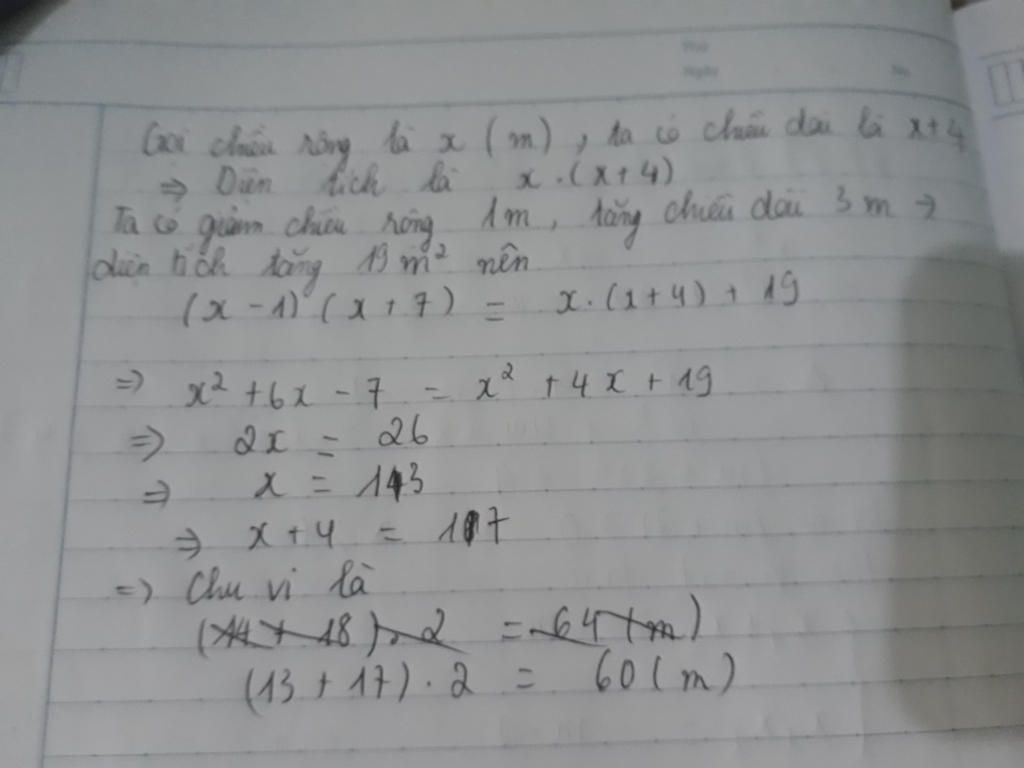 Thứ
Ngày No.
Gọi chiều rộng là x (m), ta có chiều dài là x+4
=> Diện tích là x.(x+4)
Ta có giảm chiều rộng 1m, tăng chiều dài 3m →
diện tích tăng 19m² nên
(x-1)(x+7) = x.(x+4) + 19
=> x² + 6x - 7 = x² + 4x + 19
=> 2x = 26
=> x = 13
=> x+4 = 17
=> Chu vi là
(14 + 18).2 = 64 (m)
(13 + 17).2 = 60 (m)